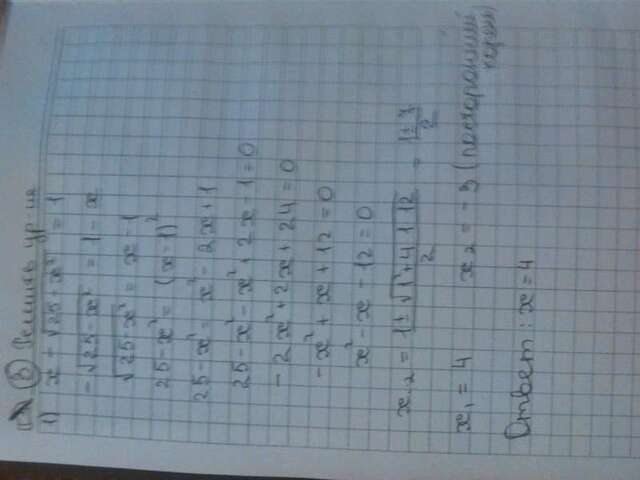 ③ Решить ур-ия
1) x - √25-x² = 1
-√25-x² = 1 - x
√25-x² = x - 1
25-x² = (x-1)²
25-x² = x² - 2x + 1
25-x² - x² + 2x - 1 = 0
-2x² + 2x + 24 = 0
-x² + x + 12 = 0
x² - x - 12 = 0
x₁,₂ = 1±√1²+4·1·12 / 2 = 1±7 / 2
x₁ = 4 x₂ = -3 (посторонний корень)
Ответ: x = 4